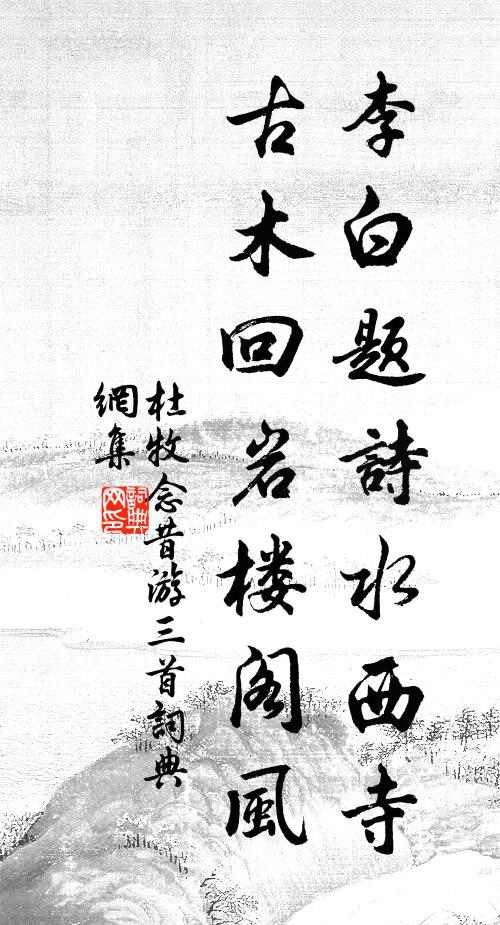 李白题詩水西寺
古木回岩楼阁風
杜牧念昔游三首詞典
網集
詞典
网印